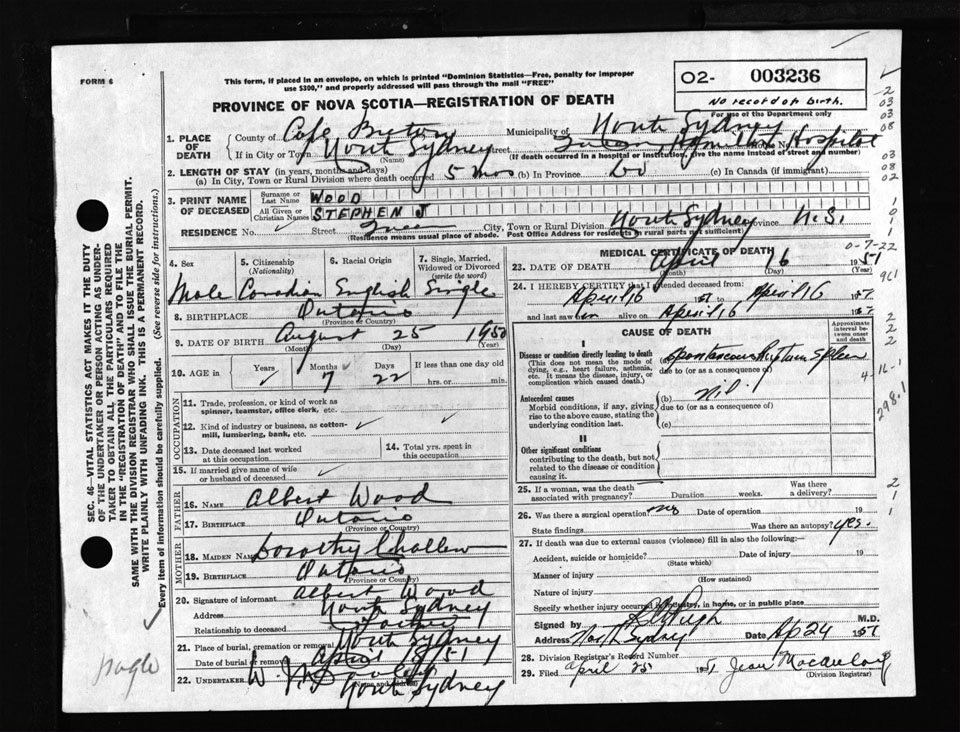 FORM 6
This form, if placed in an envelope, on which is printed "Dominion Statistics—Free, penalty for improper
use $300," and properly addressed will pass through the mail "FREE"
O2- 003236
No record of birth.
For use of the Department only
PROVINCE OF NOVA SCOTIA—REGISTRATION OF DEATH
1. PLACE OF DEATH
County of Cape Breton Municipality of North Sydney
If in City or Town North Sydney (Name) Street Hospital
(If death occurred in a hospital or institution, give the name instead of street and number)
2. LENGTH OF STAY (in years, months and days)
(a) In City, Town or Rural Division where death occurred 5 mos (b) In Province do (c) In Canada (if immigrant)
3. PRINT NAME OF DECEASED
Surname or Last Name WOOD
All Given or Christian Names STEPHEN J
RESIDENCE No. Street City, Town or Rural Division North Sydney Province N.S.
(Residence means usual place of abode. Post Office Address for residents in rural parts not sufficient)
4. Sex
5. Citizenship (Nationality)
6. Racial Origin
7. Single, Married, Widowed or Divorced (write the word)
Male Canadian English Single
8. BIRTHPLACE Ontario
(Province or Country)
9. DATE OF BIRTH August 25 1950
(Month) (Day) (Year)
10. AGE in Years Months 7 Days 22 If less than one day old
hrs. or min.
OCCUPATION
11. Trade, profession, or kind of work as spinner, teamster, office clerk, etc.
12. Kind of industry or business, as cotton-mill, lumbering, bank, etc.
13. Date deceased last worked at this occupation
14. Total yrs. spent in this occupation
15. If married give name of wife or husband of deceased
FATHER
16. NAME Albert Wood
17. BIRTHPLACE Ontario
(Province or Country)
MOTHER
18. MAIDEN NAME Dorothy
19. BIRTHPLACE Ontario
(Province or Country)
20. Signature of informant Albert Wood
Address North Sydney
Relationship to deceased Father
21. Place of burial, cremation or removal North Sydney
Date of burial or removal April 18 51
22. UNDERTAKER
(Name and Address)
North Sydney
MEDICAL CERTIFICATE OF DEATH
23. DATE OF DEATH April 16 1951
(Month) (Day) (Year)
24. I HEREBY CERTIFY that I attended deceased from:
April 16 1951 to April 16 1951
and last saw him alive on April 16 1951
CAUSE OF DEATH
Approximate interval between onset and death
I
Disease or condition directly leading to death (a) Spontaneous Rupture Spleen
(This does not mean the mode of dying, e.g., heart failure, asthenia, etc. It means the disease, injury, or complication which caused death.)
due to (or as a consequence of)
Antecedent causes (b) Nil.
Morbid conditions, if any, giving rise to the above cause, stating the underlying condition last.
due to (or as a consequence of)
(c)
II
Other significant conditions
contributing to the death, but not related to the disease or condition causing it.
25. If a woman, was the death associated with pregnancy? Duration weeks. Was there a delivery?
26. Was there a surgical operation? no Date of operation 19
State findings Was there an autopsy? yes.
27. If death was due to external causes (violence) fill in also the following:—
Accident, suicide or homicide? Date of injury 19
(State which)
Manner of injury
(How sustained)
Nature of injury
Specify whether injury occurred in industry, in home, or in public place
Signed by M.D.
Address North Sydney Date Ap 24 1951
28. Division Registrar's Record Number
29. Filed April 25 1951 Jean Macaulay
(Division Registrar)
SEC. 46—VITAL STATISTICS ACT MAKES IT THE DUTY
OF THE UNDERTAKER OR PERSON ACTING AS UNDER-
TAKER TO OBTAIN ALL THE PARTICULARS REQUIRED
IN THE "REGISTRATION OF DEATH" AND TO FILE THE
SAME WITH THE DIVISION REGISTRAR WHO SHALL ISSUE THE BURIAL PERMIT.
WRITE PLAINLY WITH UNFADING INK. THIS IS A PERMANENT RECORD.
Every item of information should be carefully supplied. (See reverse side for instructions.)
2
03
03
08
03
08
02
1
0
1
1
0-7-22
961
2
2
2
4-16-1
298.1
2
1
1